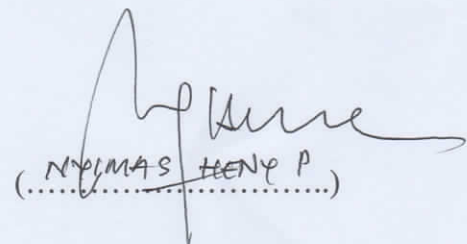 (NYIMAS HENY P)